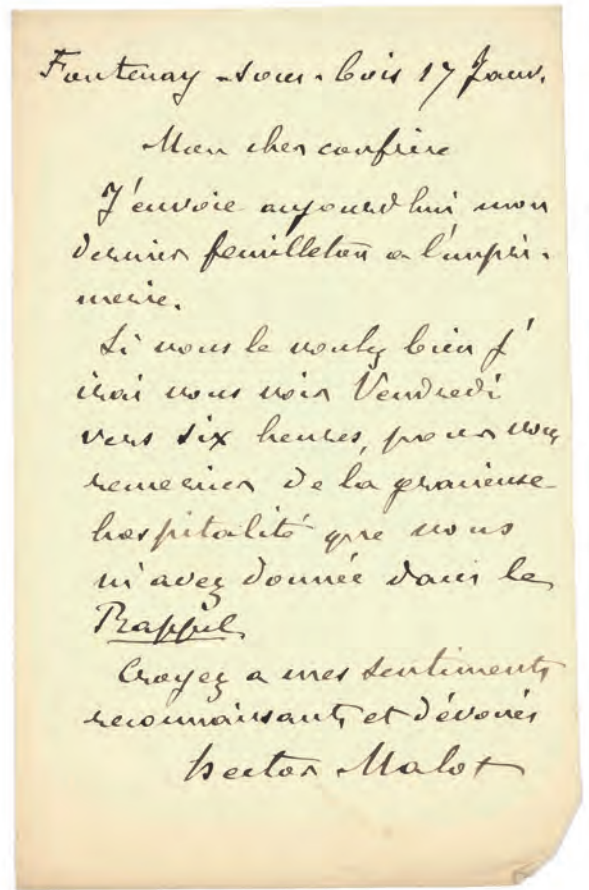 Fontenay-sous-bois 17 Janv.
Mon cher confrère
J'envoie aujourd'hui mon
dernier feuilleton a l'impri-
merie.
Si vous le voulez bien j'
irai vous voir Vendredi
vers six heures, pour vous
remercier de la gracieuse
hospitalité que vous
m'avez donnée dans le
Rappel.
Croyez a mes sentiments
reconnaissants et dévoués
Hector Malot